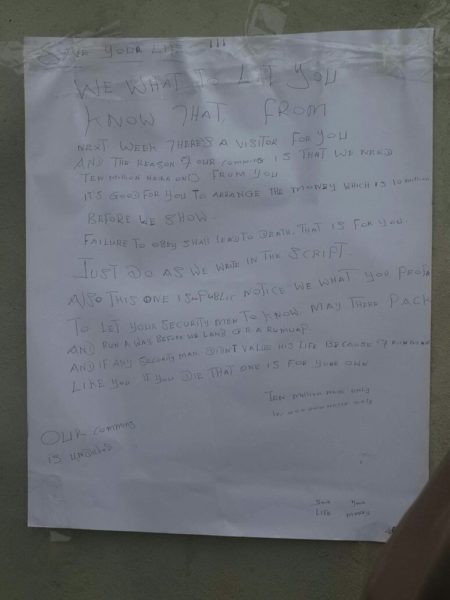 YOUR LIFE !!!
WE WHAT TO LET YOU
KNOW THAT, FROM
NEXT WEEK THERE'S A VISITOR FOR YOU
AND THE REASON OF OUR comming IS THAT WE NEED
TEN MILLION NAIRA ONLY FROM YOU
IT'S GOOD FOR YOU TO ARRANGE THE MONEY WHICH IS 10 million
BEFORE WE SHOW.
FAILURE TO OBEY SHALL LEAD TO DEATH, THAT IS FOR YOU.
JUST DO AS WE WRITE IN THE SCRIPT.
ALSO THIS ONE IS PUBLIC NOTICE WE WHAT YOU PEOPLE
TO LET YOUR SECURITY MEN TO KNOW. MAY THERE PACK
AND RUN A WAY BEFORE WE LAND
AND IF ANY SECURITY MAN DIDN'T VALUE HIS LIFE BECAUSE OF
LIKE YOU. IF YOU DIE THAT ONE IS FOR YOUR OWN
TEN million naira only
10,000,000 naira only
OUR comming
IS
Save Your
LIFE money